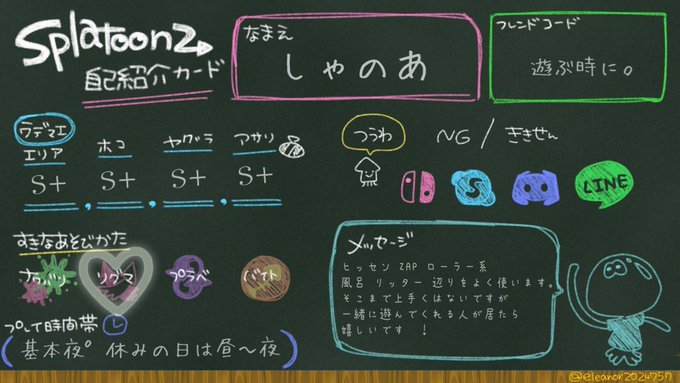 Splatoon2
自己紹介カード
なまえ
しゃのあ
フレンドコード
遊ぶ時に。
ウデマエ
エリア ホコ ヤグラ アサリ
S+ , S+ , S+ , S+
つうわ
NG / ききせん
S
LINE
すきなあそびかた
ナワバリ リグマ プラベ バイト
プレイ時間帯
(基本夜。休みの日は昼〜夜)
メッセージ
ヒッセン ZAP ローラー系
風呂 リッター 辺りをよく使います。
そこまで上手くはないですが
一緒に遊んでくれる人が居たら
嬉しいです !
@eleanor2024757